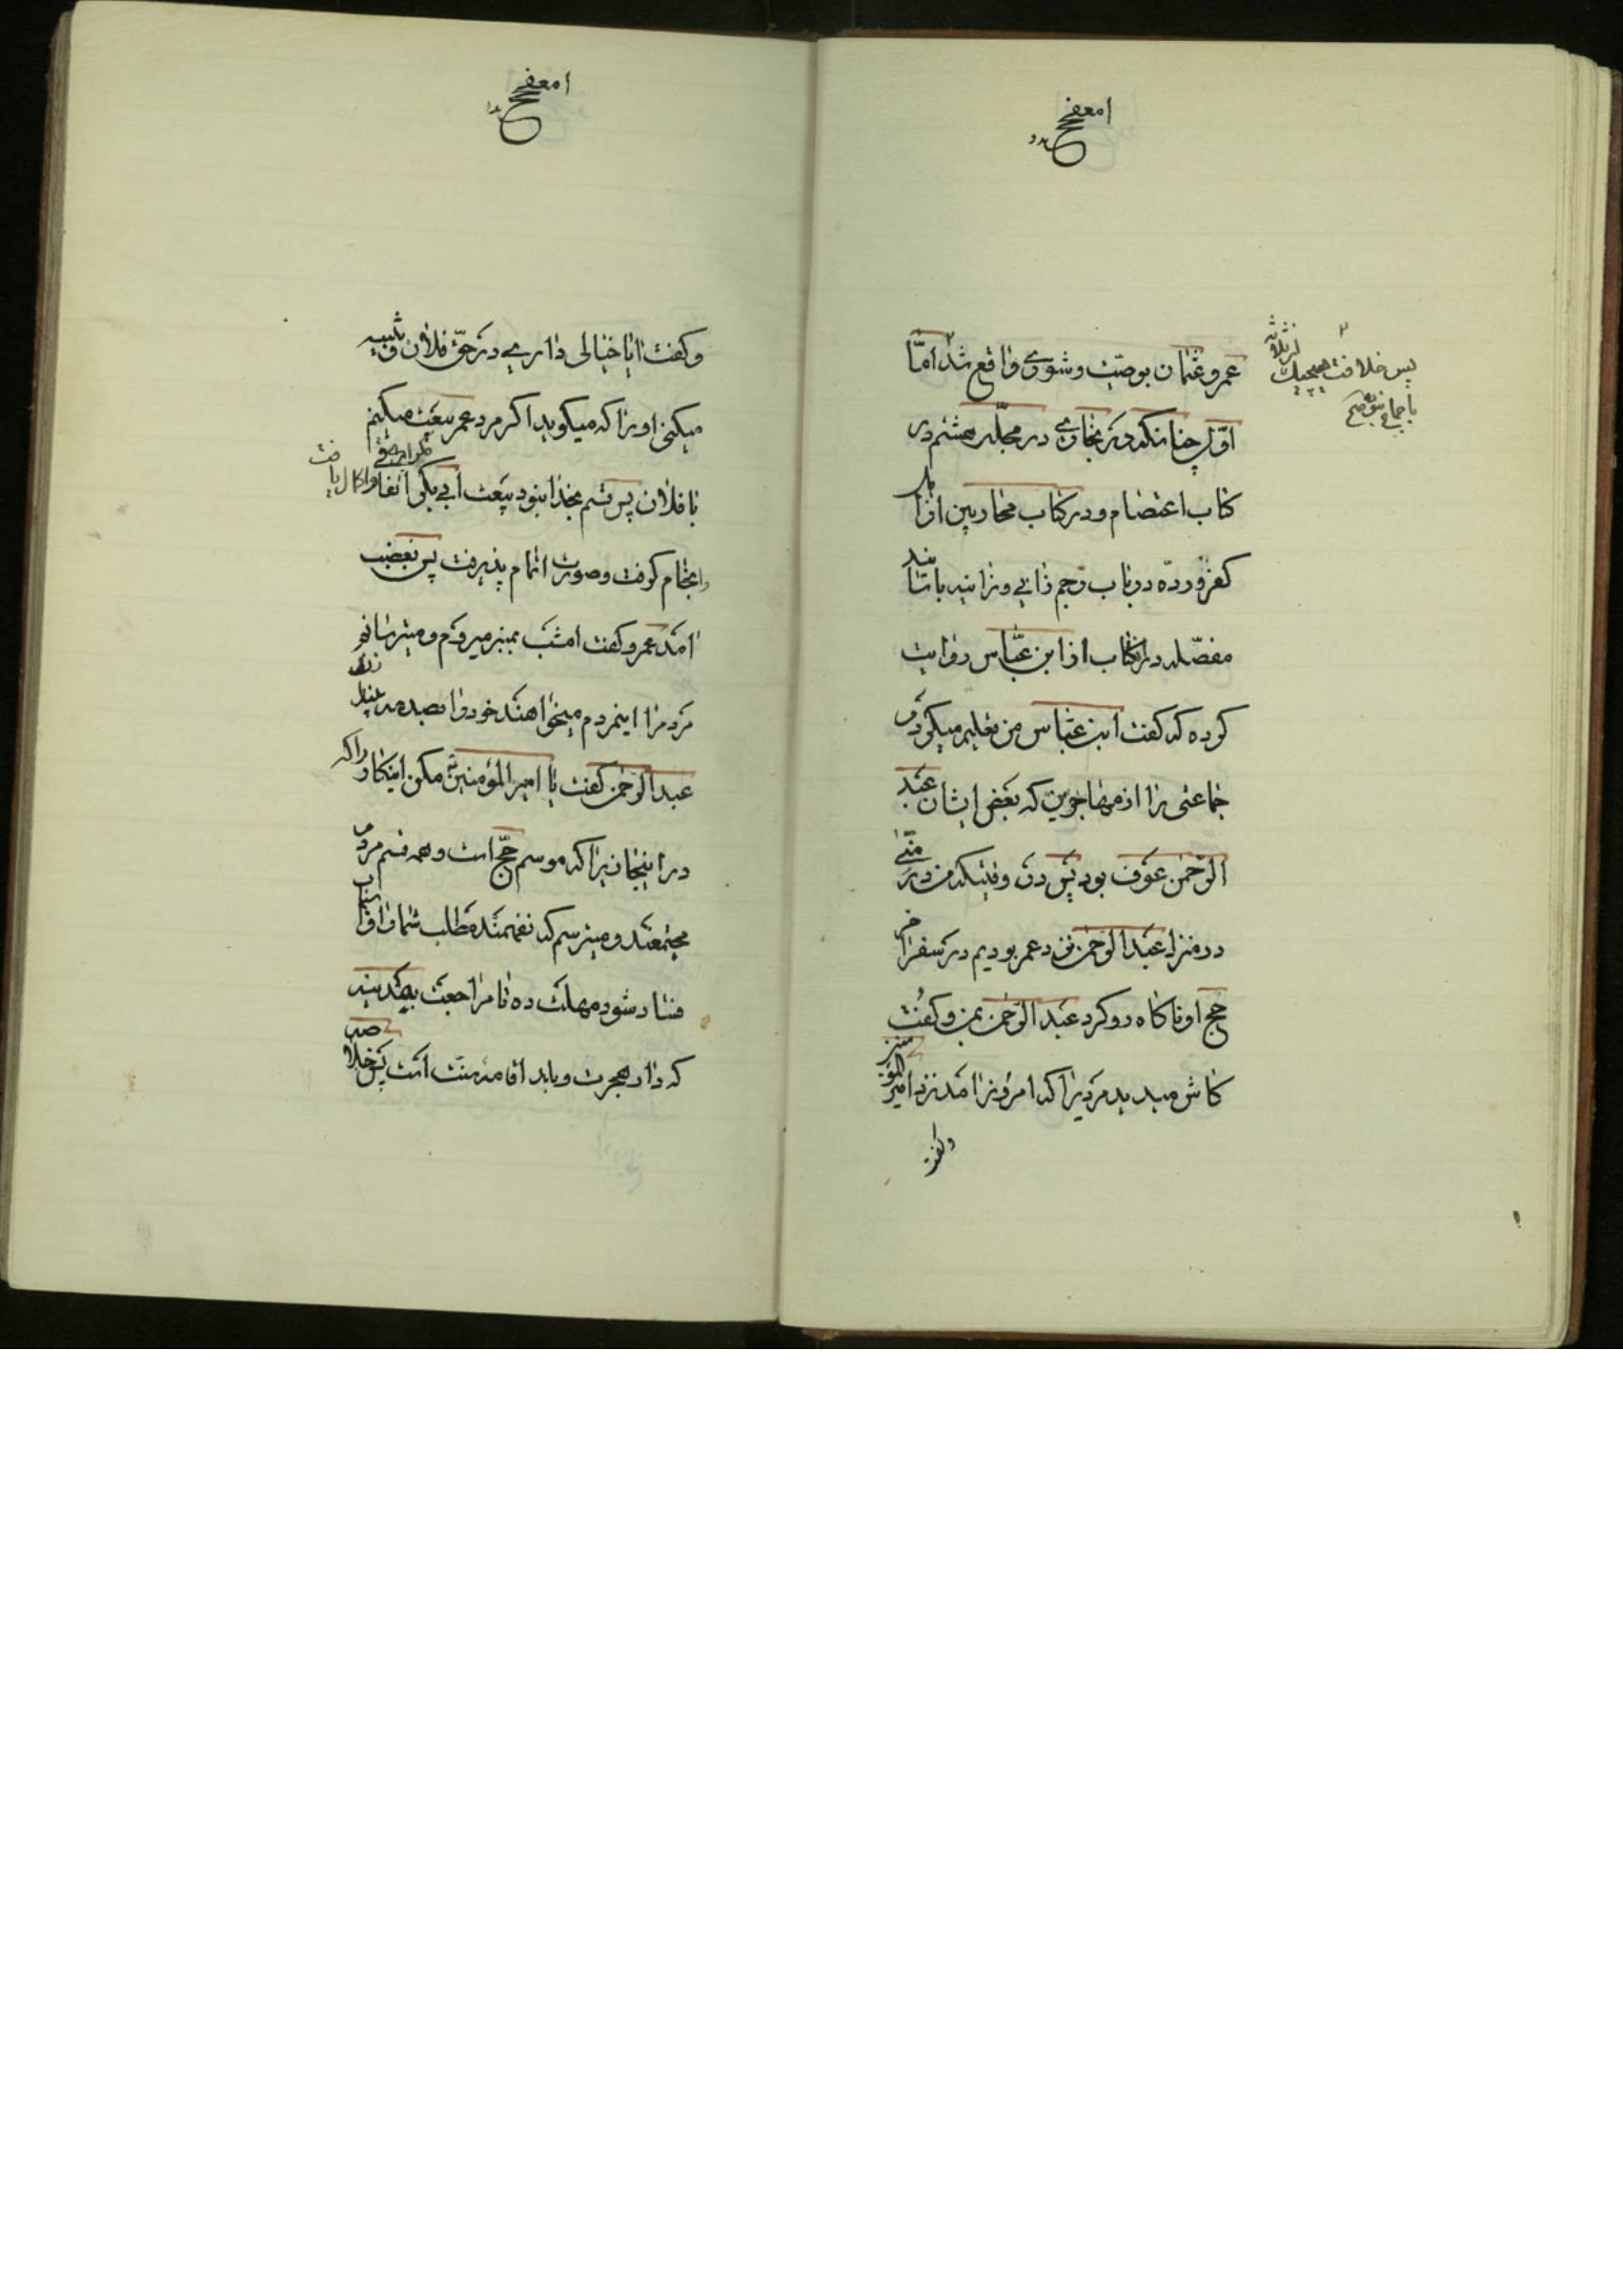 عمر و عثمان بوصیّت و شوری واقع شد امّا
اوّل چنانکه در بخاری در مجلّد هشتم در
کتاب اعتصام و در کتاب محاربین از اهل
کفر و ردّه در باب رجم زانی و زانیه باسانید
مفصّله در انکتاب از ابن عبّاس روایت
کرده که گفت ابن عبّاس من تعلیم میکردم
جماعتی را از مهاجرین که بعض ایشان عبد
الرّحمن عوف بود پس در وقتیکه من در منی
در منزل عبد الرّحمن نزد عمر بودیم در سفر اخر
حج او ناکاه رو کرد عبد الرّحمن بمن و کفت
کاش میدیدی مردیرا که امروز امد نزد امیر المؤمنین
و گفت
پس خلافت هیچیک از ثلاثه
باجماع نبوده
و کفت ایا خیالی داری در حقّ فلان و تنبیه
میکنی او را که میکوید اکر مرد عمر بیعت میکنم
با فلان پس قسم بخدا نبود بیعت ابی بکر مکر امر اتفاقی و اکمال یافت
و انجام کرفت و صورت اتمام پذیرفت پس بغضب
امد عمر و کفت امشب بمنبر میروم و میترسانم
مردمرا اینمردم میخواهند خود را
عبد الرّحمن کفت یا امیر المؤمنین مکن اینکار را که
در اینجا زیرا که موسم حجّ است و همه قسم مردم
مجتمعند و میترسم که نفهمند مطلب شما را و اسباب
فساد شود مهلت ده تا مراجعت بمدینه
که دار هجرت و باید اقامه سنّت است پس خلاصه